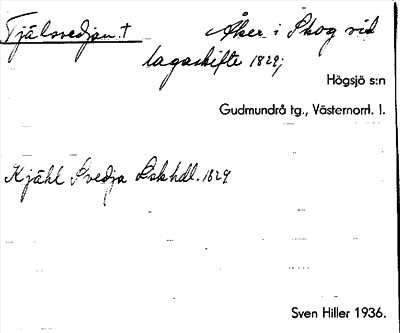 Tjälsvedjan.† Åker i Skog vid
lagaskifte 1829;
Högsjö s:n
Gudmundrå tg., Västernorrl. l.
Kjähl Svedja Lskhdl. 1829
Sven Hiller 1936.